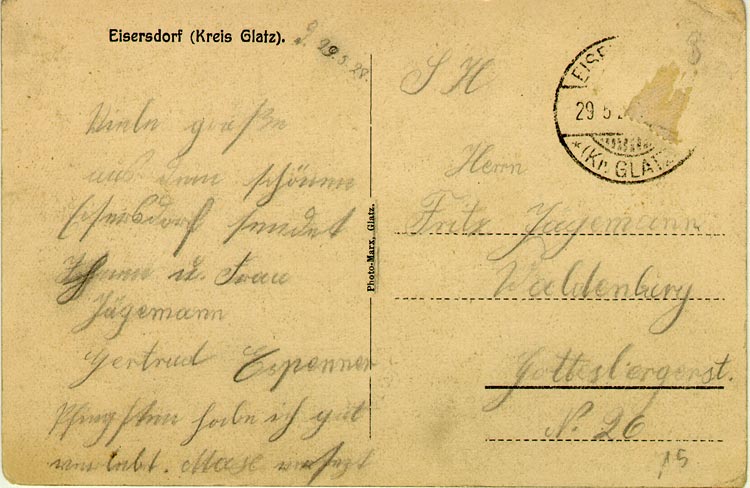 Eisersdorf (Kreis Glatz).
29.5.28.
Viele grüße
aus dem schönen
Eisersdorf sendet
Ihnen u. Frau
Jägemann
Gertrud
Pfingsten habe ich gut
verlebt.
Photo-Marx, Glatz.
S H
EISE
29 5 2
*(Kr. GLATZ
8
Herrn
Fritz Jägemann
Waldenburg
Gottesbergerst.
N. 26
15